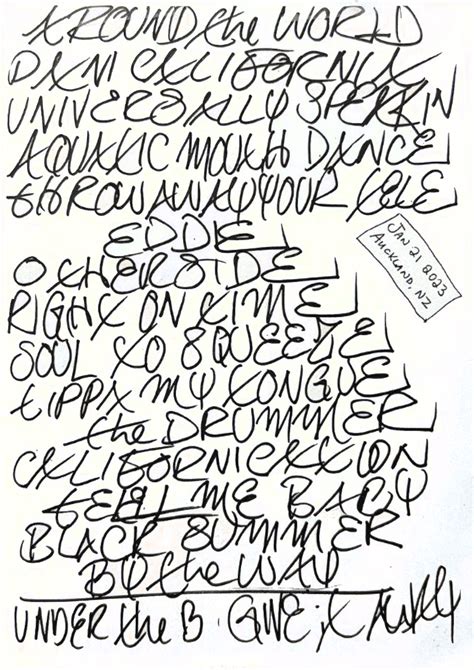 AROUND the WORLD
DANI CALIFORNIA
UNIVERSALLY SPEAKIN
AQUATIC MOUTH DANCE
tHROW AWAY YOUR TELE
EDDIE
OTHERSIDE
JAN 21 2023
AUCKLAND, NZ
RIGHT ON TIME
SOUL TO SQUEEZE
tIPPA MY TONGUE
the DRUMMER
CALIFORNICATION
tELL ME BABY
BLACK SUMMER
BY the WAY
UNDER the B · GIVE iT AWAY